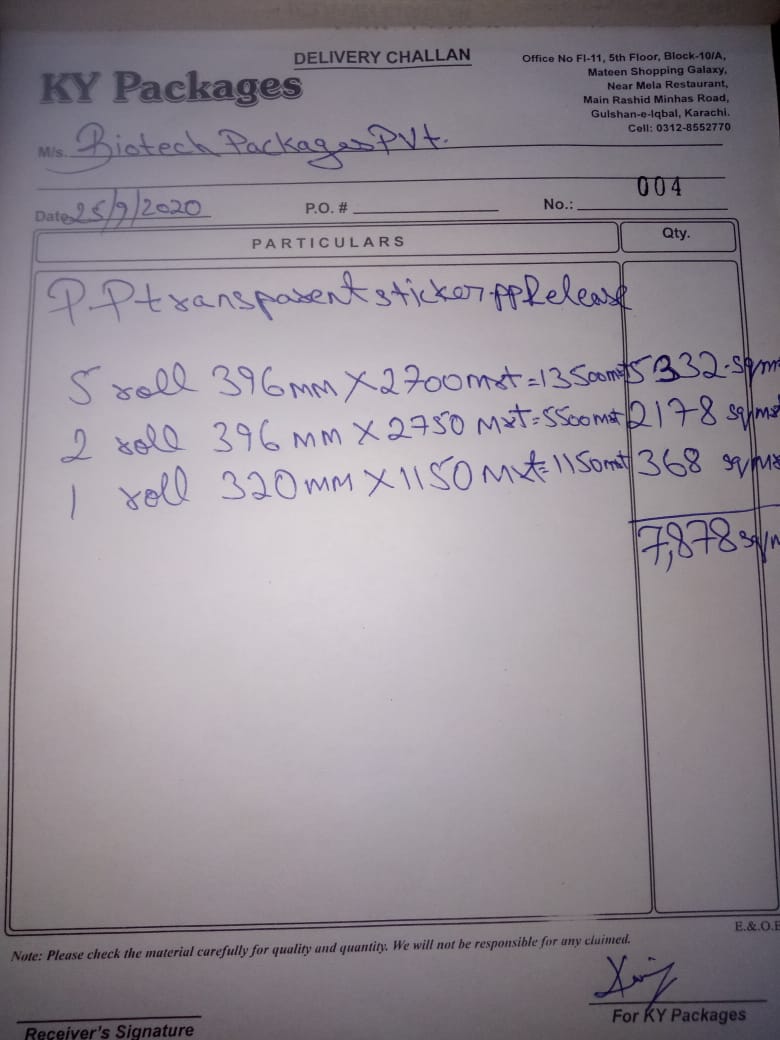 DELIVERY CHALLAN
KY Packages
Office No FI-11, 5th Floor, Block-10/A,
Mateen Shopping Galaxy,
Near Mela Restaurant,
Main Rashid Minhas Road,
Gulshan-e-Iqbal, Karachi.
Cell: 0312-8552770
M/s. Biotech Packages PVt.
Date 25/9/2020 P.O. # No.: 004
PARTICULARS Qty.
P.P transparent sticker pp Release
5 roll 396mm X 2700 mrt = 13500 mrt 5332 sqm
2 roll 396 mm X 2750 Mrt = 5500 mrt 2178 sqmr
1 roll 320mm X 1150 Mrt = 1150 mrt 368 sqmr
7,878 sqm
E.&.O.E
Note: Please check the material carefully for quality and quantity. We will not be responsible for any claimed.
Receiver's Signature
For KY Packages